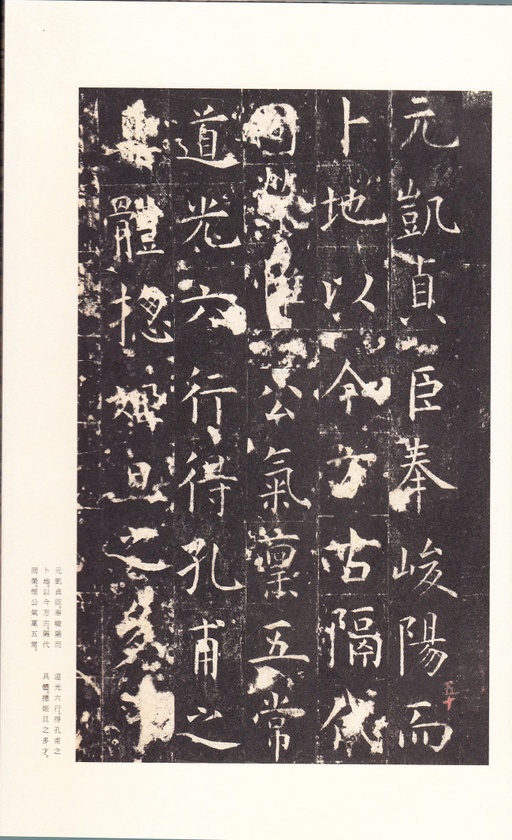 元凱貞臣奉峻陽而
卜地以今方古隔代
同榮惟公氣稟五常
道光六行得孔甫之
具體揔姬旦之多才
五十
元凱貞臣。奉峻陽而
卜地。以今方古。隔代
同榮。惟公氣稟五常。
道光六行。得孔甫之
具體。揔姬旦之多才。